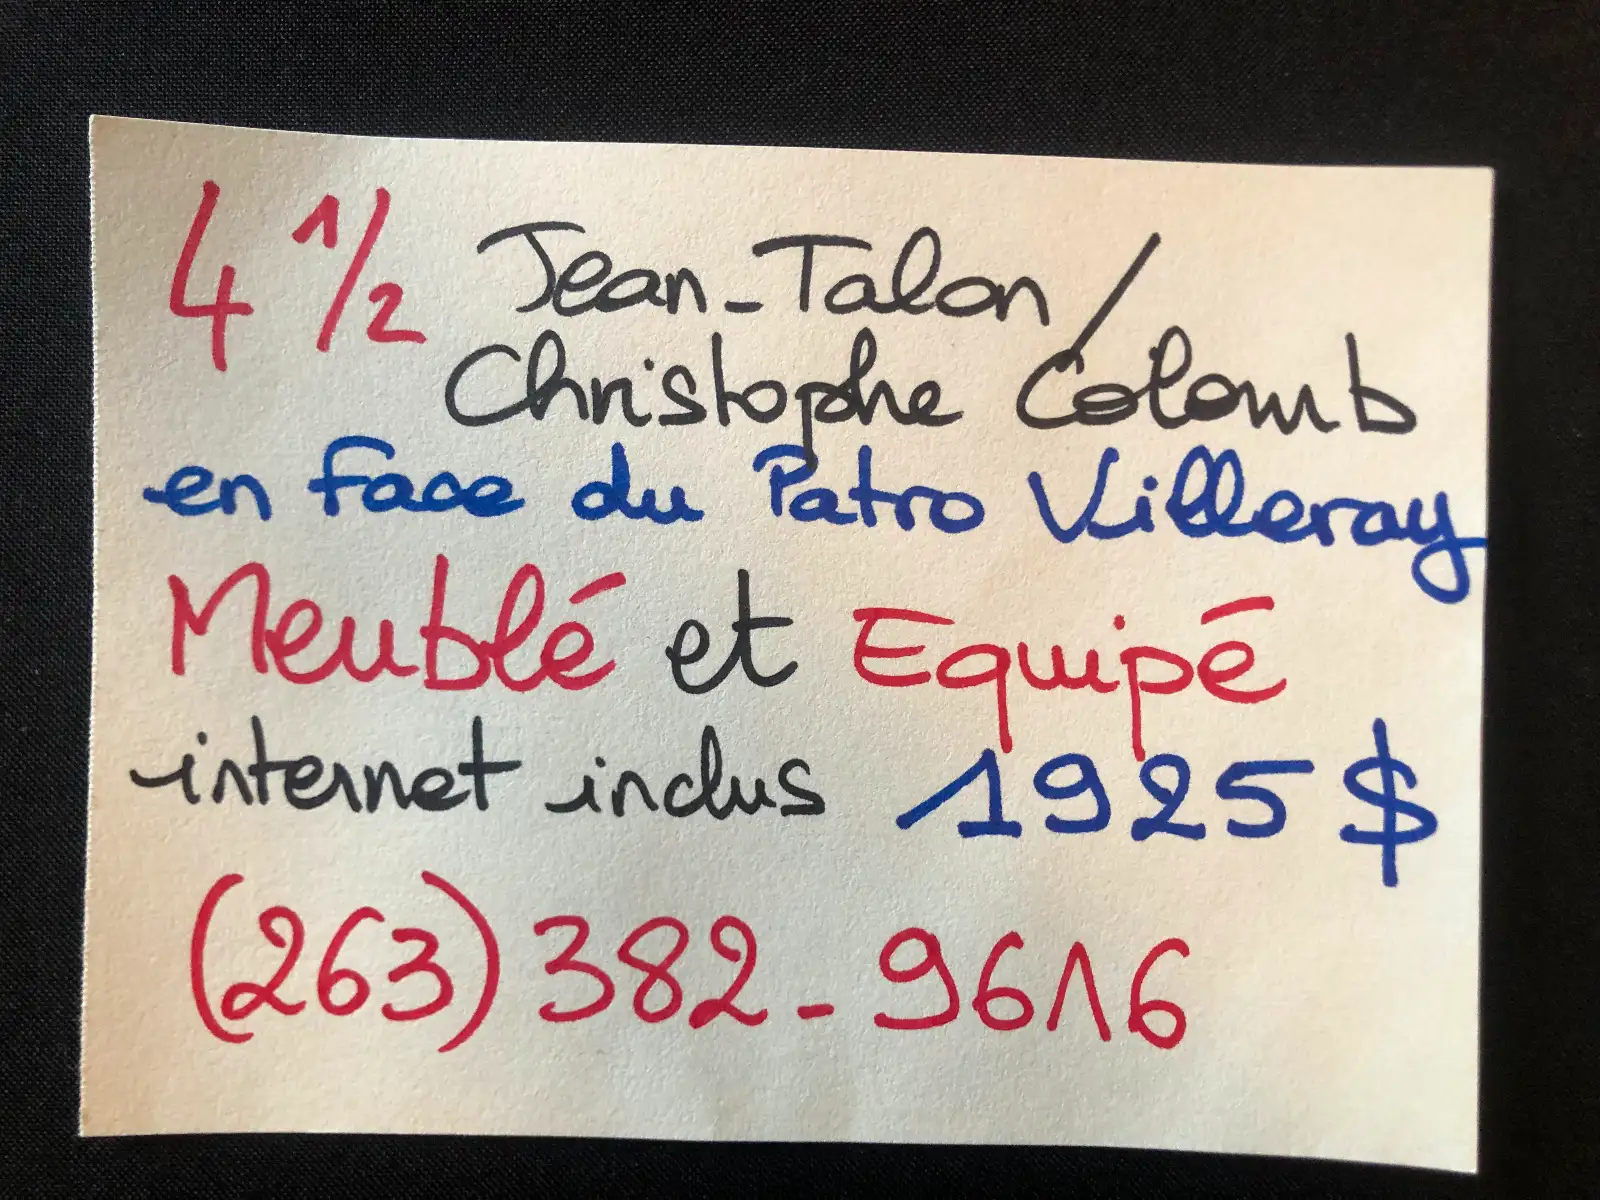 4 1/2 Jean-Talon/
Christophe Colomb
en face du Patro Villeray
Meublé et Equipé
internet inclus 1925 $
(263) 382-9616